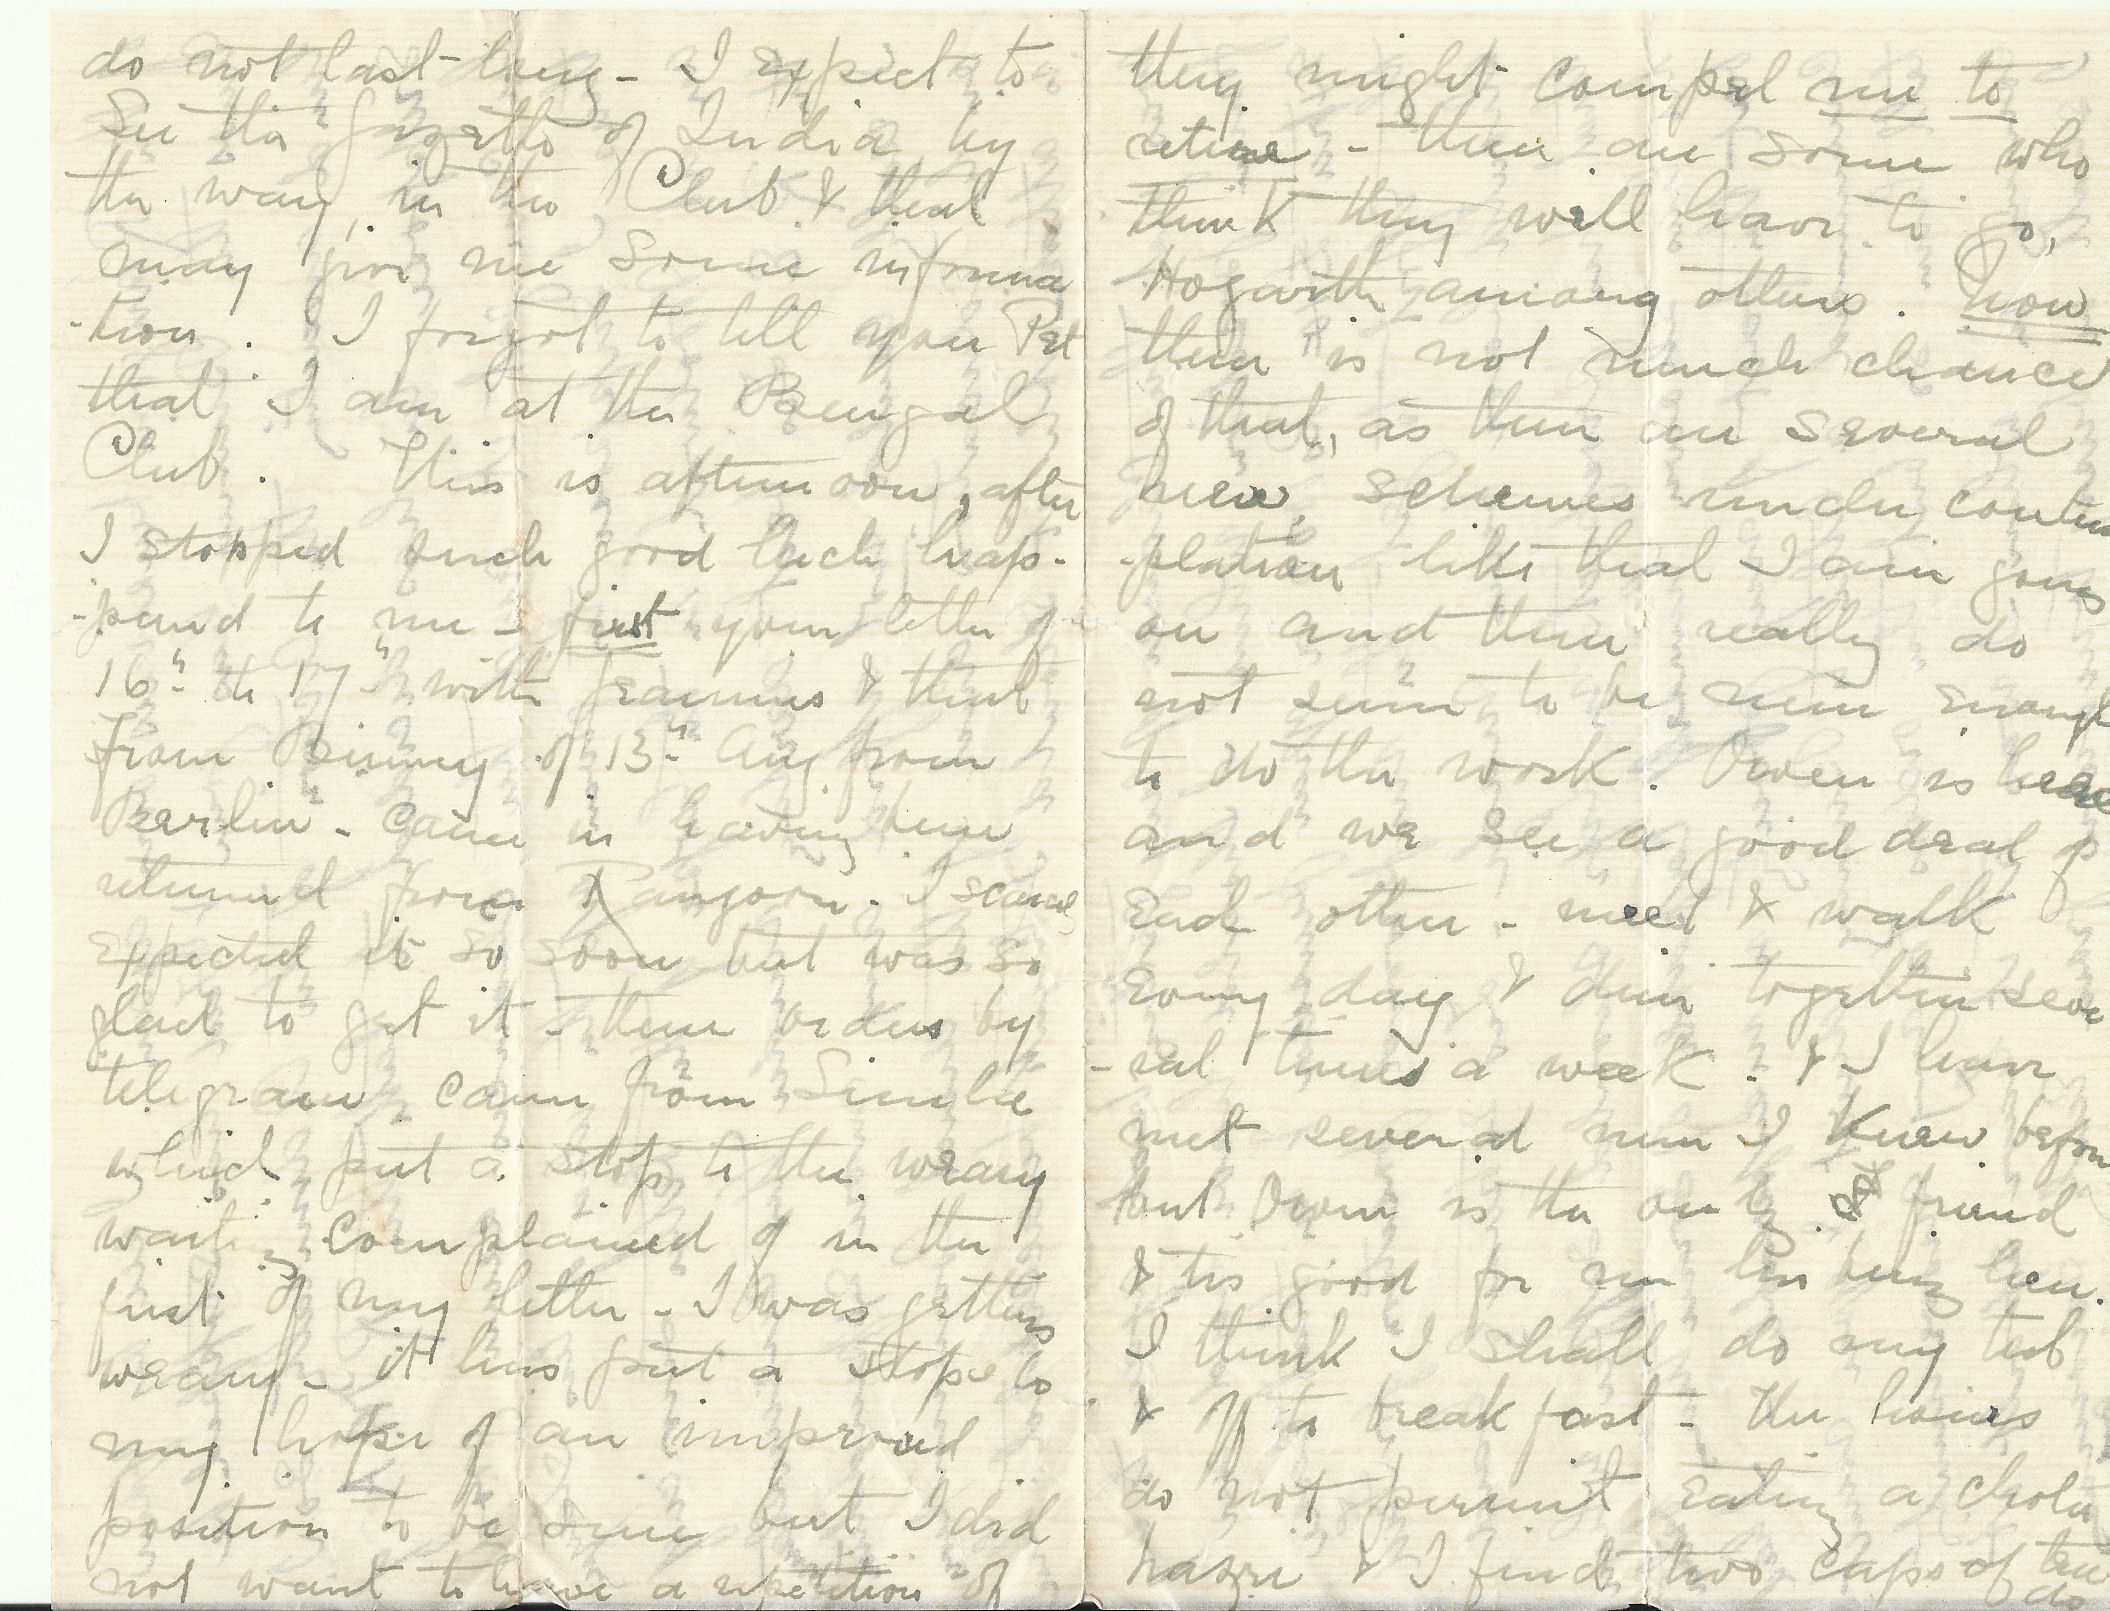 do not last long - I expect to
see the Gazette of India by
the way, in the Club & that
may give me some informa
-tion. I forgot to tell you Pet
that I am at the Bengal
Club. This is afternoon, after
I stopped such good luck hap-
-pened to me - first your letter of
16th to 17th with & that
from Binny of 13th Aug from
Berlin - came in having been
returned from Rangoon. I scarce
expected it so soon but was so
glad to get it - then orders by
telegram came from Simla
which put a stop to the weary
waiting complained of in the
first of my letter - I was getting
weary - it has put a stop to
my hope of an improved
position to be sure but I did
not want to have a repetition of
they might compel me to
retire - there are some who
think they will have to go,
Hogarth among others. now
there is not much chance
of that, as there are several
new schemes under contem
-plation like that I am going
on and there really do
not seem to be men enough
to do the work. Owen is here
and we see a good deal of
each other - meet & walk
every day & dine together seve
-ral times a week. & I have
met several men I knew before
but Owen is the only friend
& tis good for me his being here.
I think I shall do my tub
& off to breakfast - the hours
do not permit eating a chota
hazri & I find two cups of tea
do